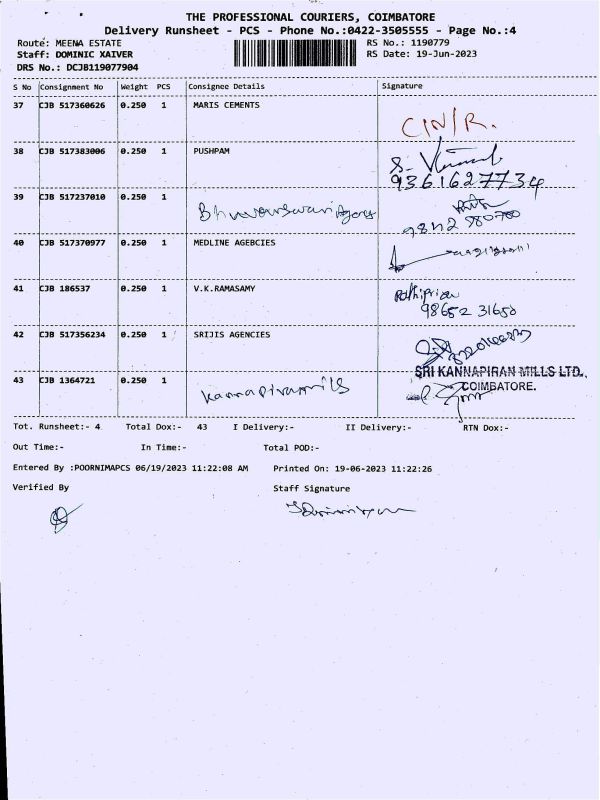 THE PROFESSIONAL COURIERS, COIMBATORE
Delivery Runsheet - PCS - Phone No.:0422-3505555 - Page No.:4
Route: MEENA ESTATE RS No.: 1190779
Staff: DOMINIC XAIVER RS Date: 19-Jun-2023
DRS No.: DCJB119077904
S No Consignment No Weight PCS Consignee Details Signature
37 CJB 517360626 0.250 1 MARIS CEMENTS
CIN/R.
38 CJB 517383006 0.250 1 PUSHPAM
9361627734
39 CJB 517237010 0.250 1
40 CJB 517370977 0.250 1 MEDLINE AGEBCIES
41 CJB 186537 0.250 1 V.K.RAMASAMY
98652 31650
42 CJB 517356234 0.250 1 SRIJIS AGENCIES
SRI KANNAPIRAN MILLS LTD.,
COIMBATORE.
43 CJB 1364721 0.250 1 Kannapiranmills
Tot. Runsheet:- 4 Total Dox:- 43 I Delivery:- II Delivery:- RTN Dox:-
Out Time:- In Time:- Total POD:-
Entered By :POORNIMAPCS 06/19/2023 11:22:08 AM Printed On: 19-06-2023 11:22:26
Verified By Staff Signature